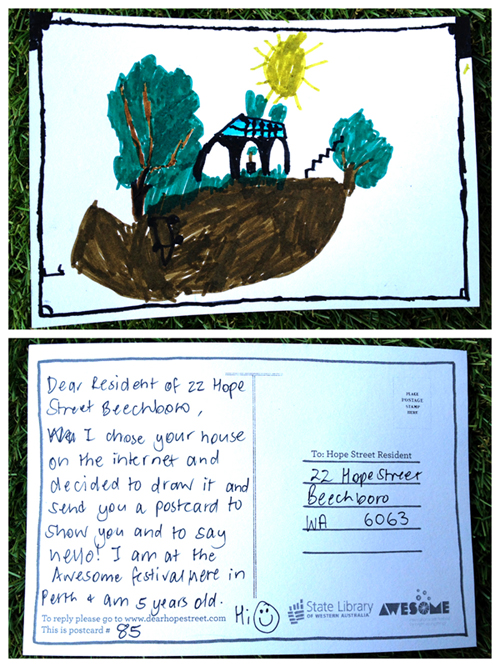 Dear Resident of 22 Hope
Street Beechboro,
I chose your house
on the internet and
decided to draw it and
send you a postcard to
show you and to say
hello! I am at the
Awesome festival here in
Perth & am 5 years old.
Hi
To reply please go to www.dearhopestreet.com
This is postcard # 85
PLACE
POSTAGE
STAMP
HERE
To: Hope Street Resident
22 Hope Street
Beechboro
WA 6063
State Library
OF WESTERN AUSTRALIA
AWESOME